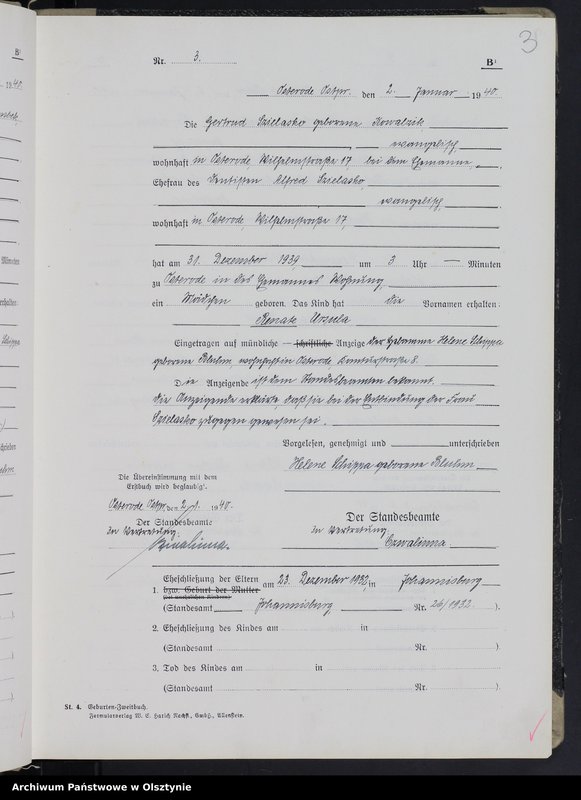 3
Nr. 3. B¹
Osterode Ostpr. den 2. Januar 1940.
Die Gertrud Szielasko geborene Kowalzik
evangelisch
wohnhaft in Osterode, Wilhelmstraße 17 bei dem Ehemanne,
Ehefrau des Dentisten Alfred Szielasko
evangelisch,
wohnhaft in Osterode, Wilhelmstraße 17,
hat am 31. Dezember 1939 um 3 Uhr — Minuten
zu Osterode in des Ehemannes Wohnung,
ein Mädchen geboren. Das Kind hat die Vornamen erhalten:
Renate Ursula
Eingetragen auf mündliche — schriftliche Anzeige der Hebamme Helene Schippa
geborene Bluhm, wohnhaft in Osterode, 8.
Die Anzeigende ist dem Standesbeamten bekannt.
Die Anzeigende erklärte, daß sie bei der Entbindung der Frau
Szielasko zugegen gewesen sei.
Vorgelesen, genehmigt und unterschrieben
Helene Schippa geborene Bluhm
Die Übereinstimmung mit dem
Erstbuch wird beglaubigt.
Osterode Ostpr. den 2. 1. 1940.
Der Standesbeamte
In Vertretung:
Der Standesbeamte
In Vertretung.
Czwalinna
Eheschließung der Eltern am 23. Dezember 1932 in Johannisburg
1. bzw. Geburt der Mutter
(bei unehelichen Kindern)
(Standesamt Johannisburg Nr. 26/1932 ).
2. Eheschließung des Kindes am in
(Standesamt Nr. )
3. Tod des Kindes am in
(Standesamt Nr. )
St. 4. Geburten-Zweitbuch.
Formularverlag W. E. Harich Nachfl., GmbH., Allenstein.
Archiwum Państwowe w Olsztynie